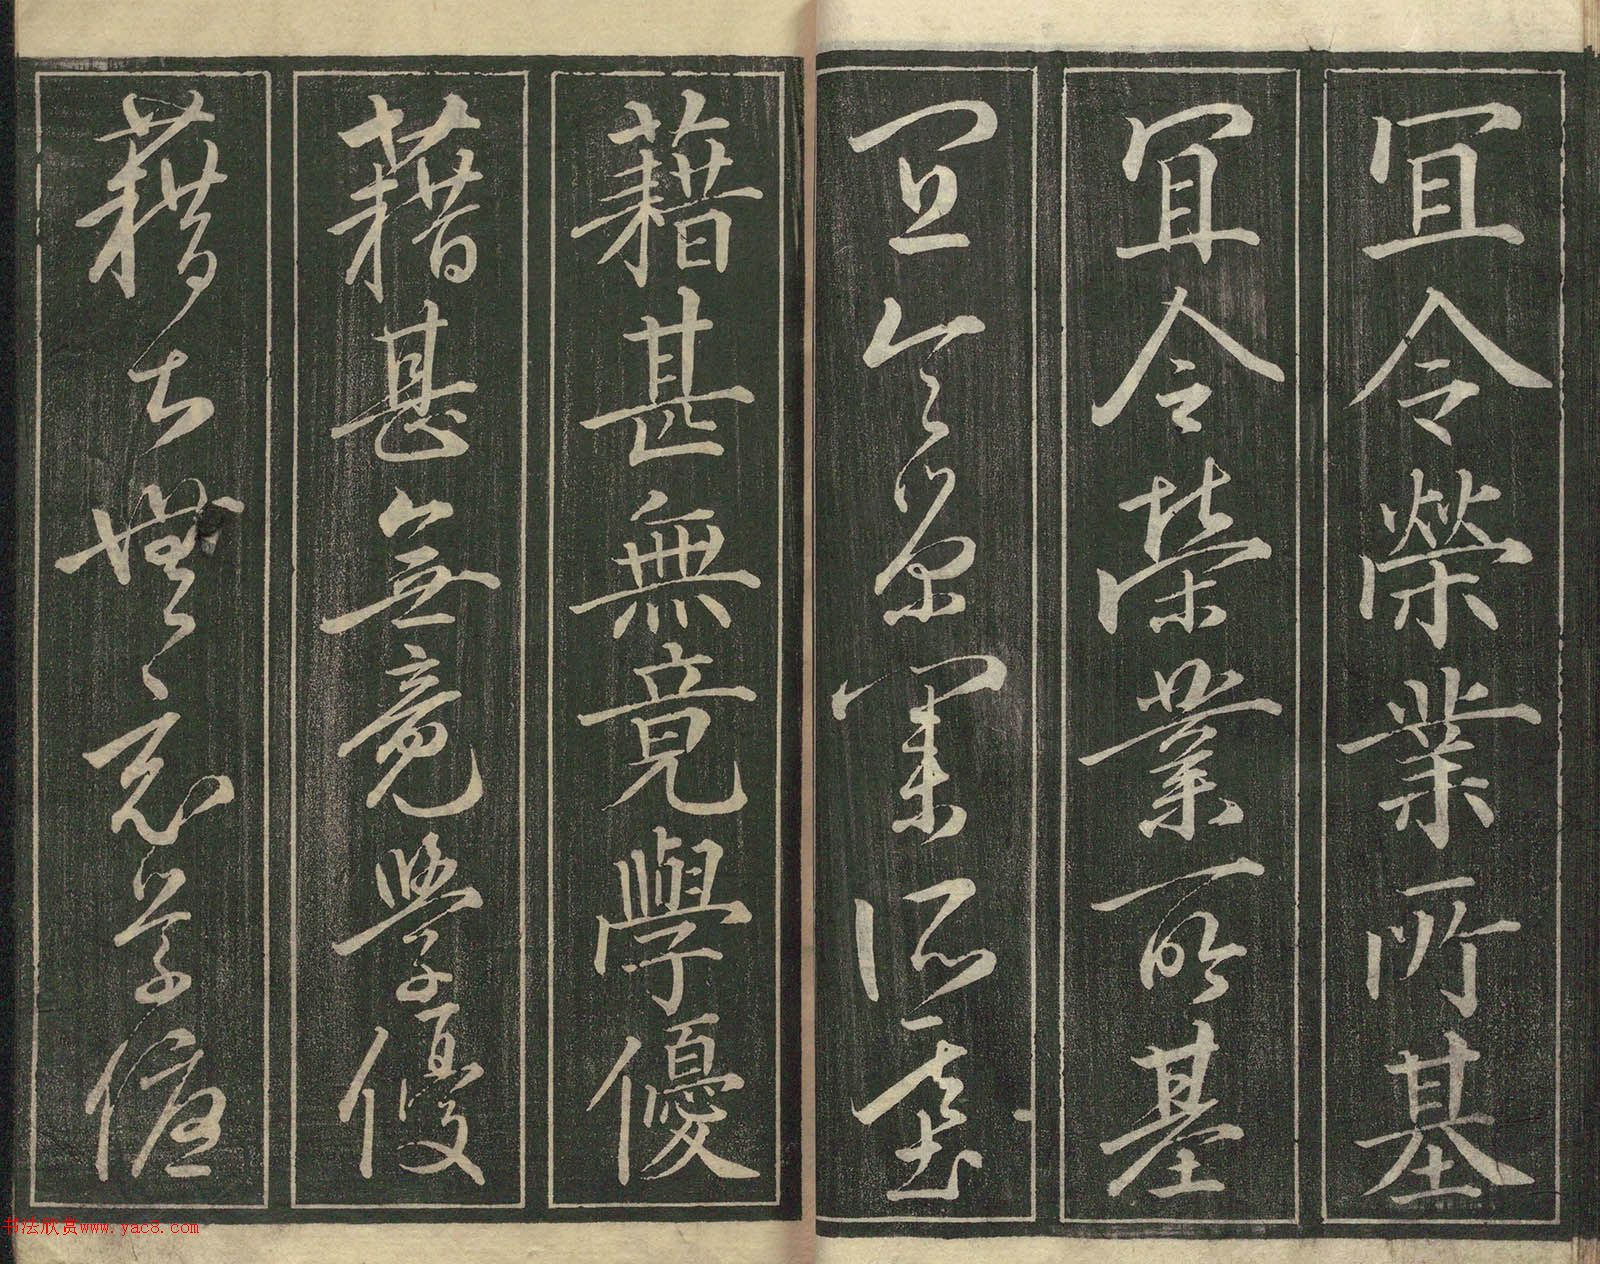 宜令榮業所基
宜令榮業所基
宜令榮業所基
藉甚無竟學優
藉甚無竟學優
藉甚無竟學優
书法欣赏www.yac8.com